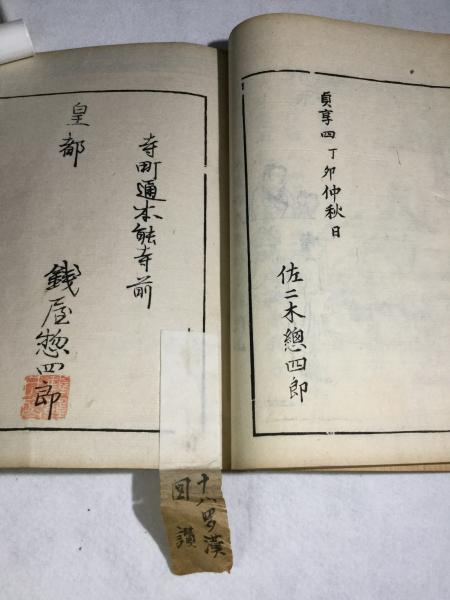 貞享四丁卯仲秋日
佐二木總四郎
寺町通本能寺前
皇都
錢屋惣四郎
十八罗漢
図讃